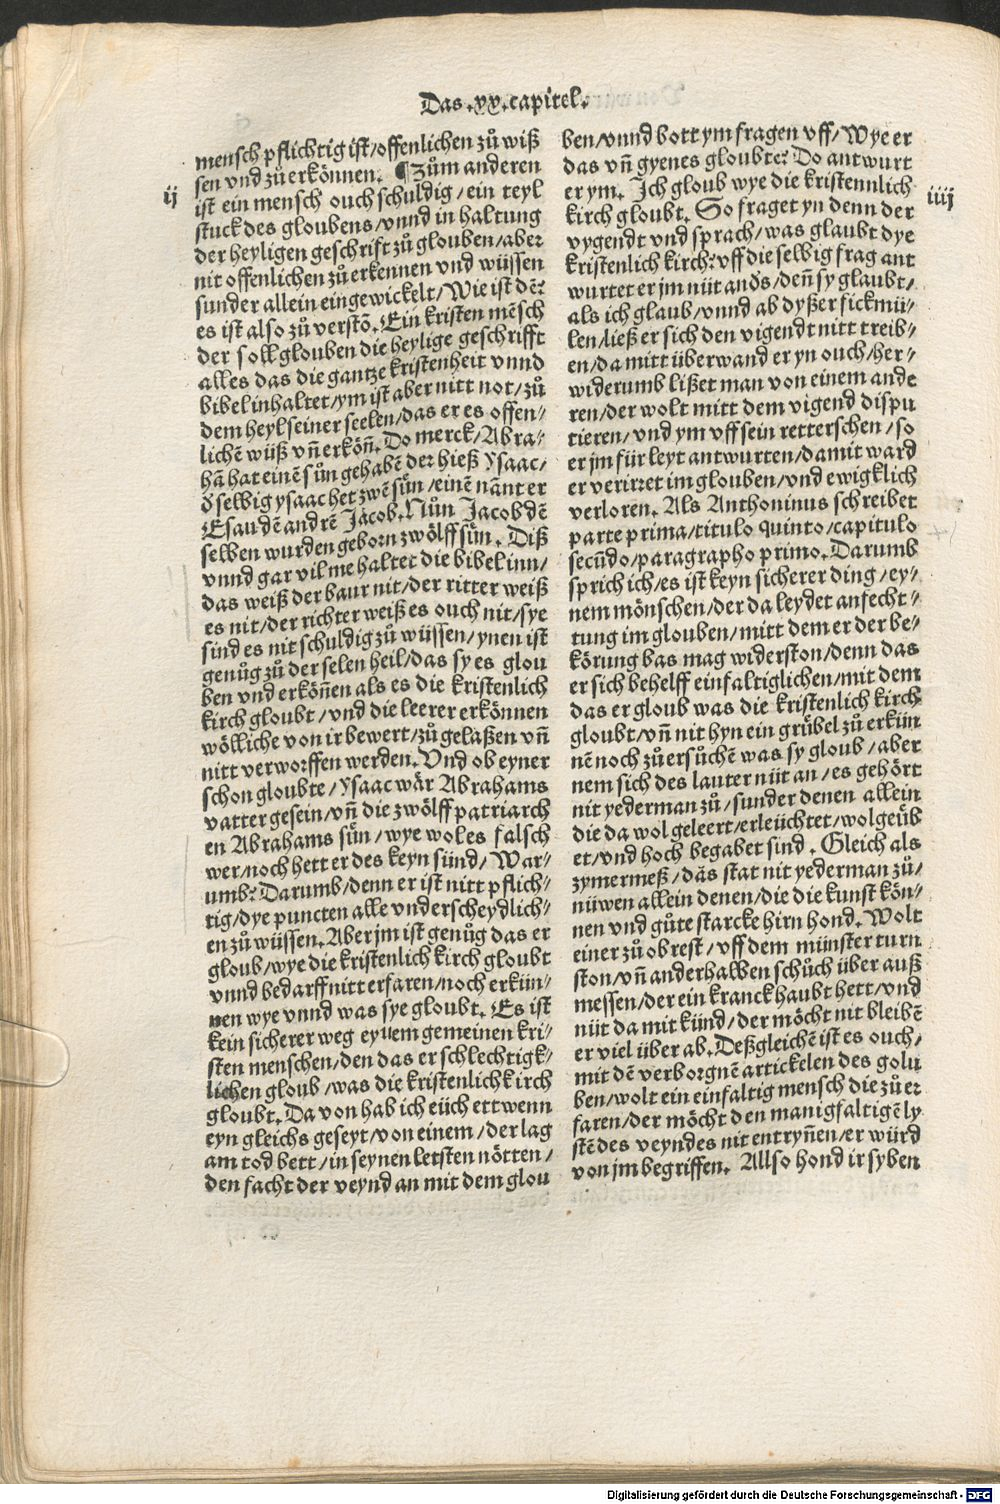 Das .xx. capitel.
mensch pflichtig ist/offenlichen zů wiß
sen vnd zů erkönnen. ¶ Zům anderen
ij
ist ein mensch ouch schuldig/ein teyl
stuck des gloubens/vnnd in haltung
der heyligen geschrift zů glouben/aber
nit offenlichen zů erkennen vnd wüssen
sunder allein eingewickelt/Wie ist dē?
es ist also zů verstō. Ein kristen mēsch
der soll glouben die heylige geschrifft
alles das die gantze kristenheit vnnd
bibel inhaltet/ym ist aber nitt not/zů
dem heyl seiner seelen/das er es offen/
lichē wüß vñ erköñ. Do merck/Abra/
hā hat einē sůn gehabē der hieß ysaac/
ð selbig ysaac het zwē sůn/einē nāt er
Esau dē andrē Jacob. Nůn Jacob dē
selben wurden geborn zwölff sůn. Diß
vnnd gar vil me haltet die bibel inn/
das weiß der baur nit/der ritter weiß
es nit/der richter weiß es ouch nit/sye
sind es nit schuldig zů wüssen/ynen ist
genůg zů der selen heil/das sy es glou
ben vnd erköñen als es die kristenlich
kirch gloubt/vnd die leerer erkönnen
wölliche von ir bewert/zů gelaßen vñ
nitt verworffen werden. Vnd ob eyner
schon gloubte/ysaac wär Abrahams
vatter gesein/vñ die zwölff patriarch
en Abrahams sůn/wye wol es falsch
wer/noch hett er des keyn sünd/War/
umb? Darumb/denn er ist nitt pflich/
tig/dye puncten alle vnderscheydlich/
en zů wüssen. Aber jm ist genůg das er
gloub/wye die kristenlich kirch gloubt
vnnd bedarff nitt erfaren/noch erkün/
nen wye vnnd was sye gloubt. Es ist
kein sicherer weg eynem gemeinen kri/
sten menschen/den das er schlechtigk/
lichen gloub/was die kristenlich kirch
gloubt. Da von hab ich eüch ettwenn
eyn gleichs geseyt/von einem/der lag
am tod bett/in seynen letsten nötten/
den facht der veynd an mit dem glou
ben/vnnd bott ym fragen vff/Wye er
das vñ gyenes gloubte? Do antwurt
er ym. Ich gloub wye die kristennlich
iiij
kirch gloubt. So fraget yn denn der
vygendt vnd sprach/was glaubt dye
kristenlich kirch? vff die selbig frag ant
wurtet er jm nüt anðs/deñ sy glaubt/
als ich glaub/vnnd ab dyßer fickmü/
len/ließ er sich den vigendt nitt treib/
en/da mitt überwand er yn ouch/her/
widerumb lißet man von einem ande
ren/der wolt mitt dem vigend dispu
tieren/vnd ym vff sein retterschen/so
er jm für leyt antwurten/damit ward
er verirret im glouben/vnd ewigklich
verloren. Als Anthoninus schreibet
parte prima/titulo quinto/capitulo
secūdo/paragrapho primo. Darumb
sprich ich/es ist keyn sicherer ding/ey/
nem mönschen/der da leydet anfecht/
tung im glouben/mitt dem er der be/
körung bas mag widerston/denn das
er sich behelff einfaltiglichen/mit dem
das er gloub was die kristenlich kirch
gloubt/vñ nit hyn ein grübel zů erkün
nē noch zů ersůchē was sy gloub/aber
nem sich des lauter nüt an/es gehört
nit yederman zů/sunder denen allein
die da wol geleert/erleüchtet/wolgeüb
et/vnd hoch begabet sind. Gleich als
zymermeß/das stat nit yederman zů/
nüwen allein denen/die die kunst kön/
nen vnd gůte starcke hirn hond. Wolt
einer zů obrest/vff dem münster turn
ston/vñ anderhalben schůch über auß
messen/der ein kranck haubt hett/vnd
nüt da mit künd/der möcht nit bleibē
er viel über ab. Deßgleichē ist es ouch/
mit dē verborgnē artickelen des golu
ben/wolt ein einfaltig mensch die zů er
faren/der möcht den manigfaltigē ly
stē des veyndes nit entryñen/er würd
von jm begriffen. Allso hond ir syben
Digitalisierung gefördert durch die Deutsche Forschungsgemeinschaft - DFG